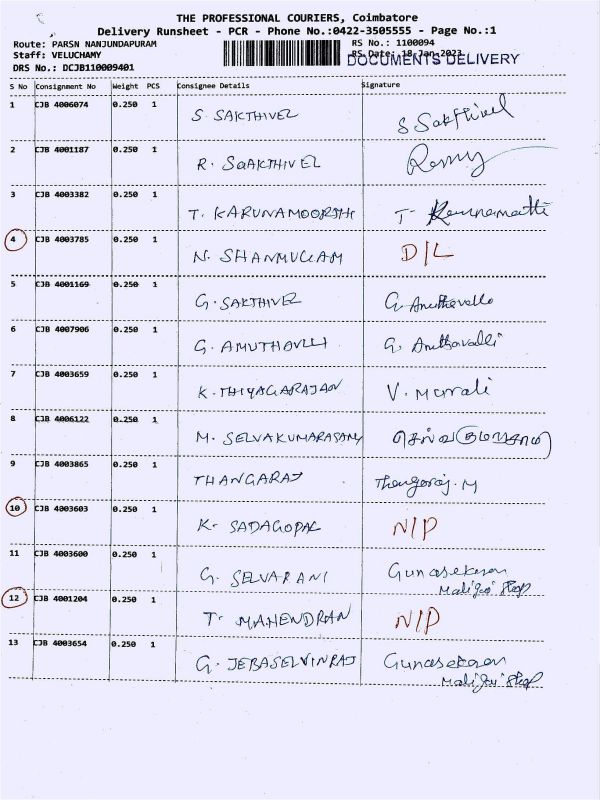 THE PROFESSIONAL COURIERS, Coimbatore
Delivery Runsheet - PCR - Phone No.:0422-3505555 - Page No.:1
Route: PARSN NANJUNDAPURAM RS No.: 1100094
Staff: VELUCHAMY RS Date: 18-Jan-2023
DOCUMENTS DELIVERY
DRS No.: DCJB110009401
S No Consignment No Weight PCS Consignee Details Signature
1 CJB 4006074 0.250 1 S SAKTHIVEL S Sakthivel
2 CJB 4001187 0.250 1 R. SAAKTHIVEL
3 CJB 4003382 0.250 1 T. KARUNAMOORTHI T.
4 CJB 4003785 0.250 1 N. SHANMUGAM D/L
5 CJB 4001169 0.250 1 G. SAKTHIVEL G. Amuthavalle
6 CJB 4007906 0.250 1 G. AMUTHAVLLI G. Amuthavalli
7 CJB 4003659 0.250 1 K. THIYAGARAJAN V. Murali
8 CJB 4006122 0.250 1 M. SELVAKUMARASAMY
9 CJB 4003865 0.250 1 THANGARAJ Thangaraj. M
10 CJB 4003603 0.250 1 K. SADAGOPAL N/P
11 CJB 4003600 0.250 1 G. SELVARANI Gunasekaran
Maligai Shop
12 CJB 4001204 0.250 1 T. MAHENDRAN N/P
13 CJB 4003654 0.250 1 G. JEBASELVINRAJ Gunasekaran
Maligai Shop